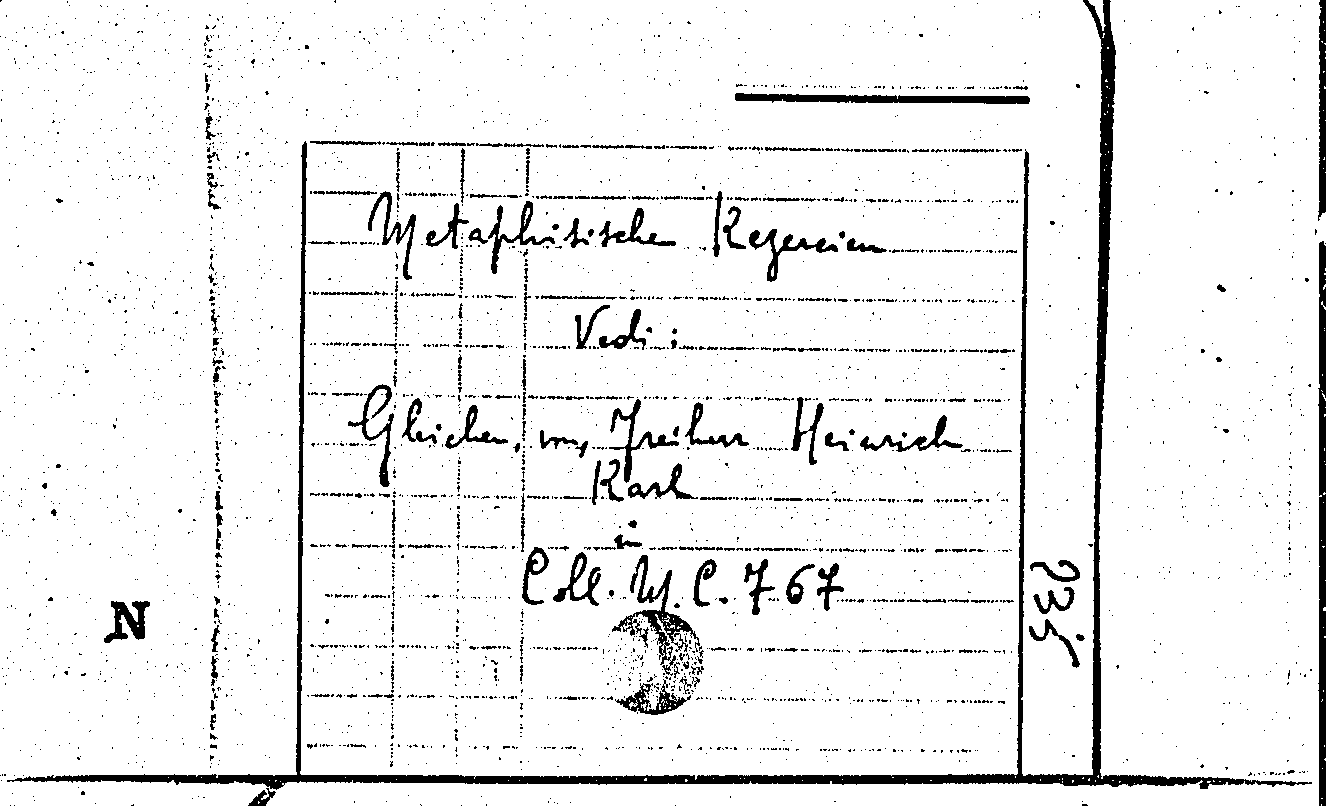 Metaphisischen Kezereien
Vedi:
Gleichen, von, Freiherr Heinrich
Karl
in
Coll. M. C. 767
235
N